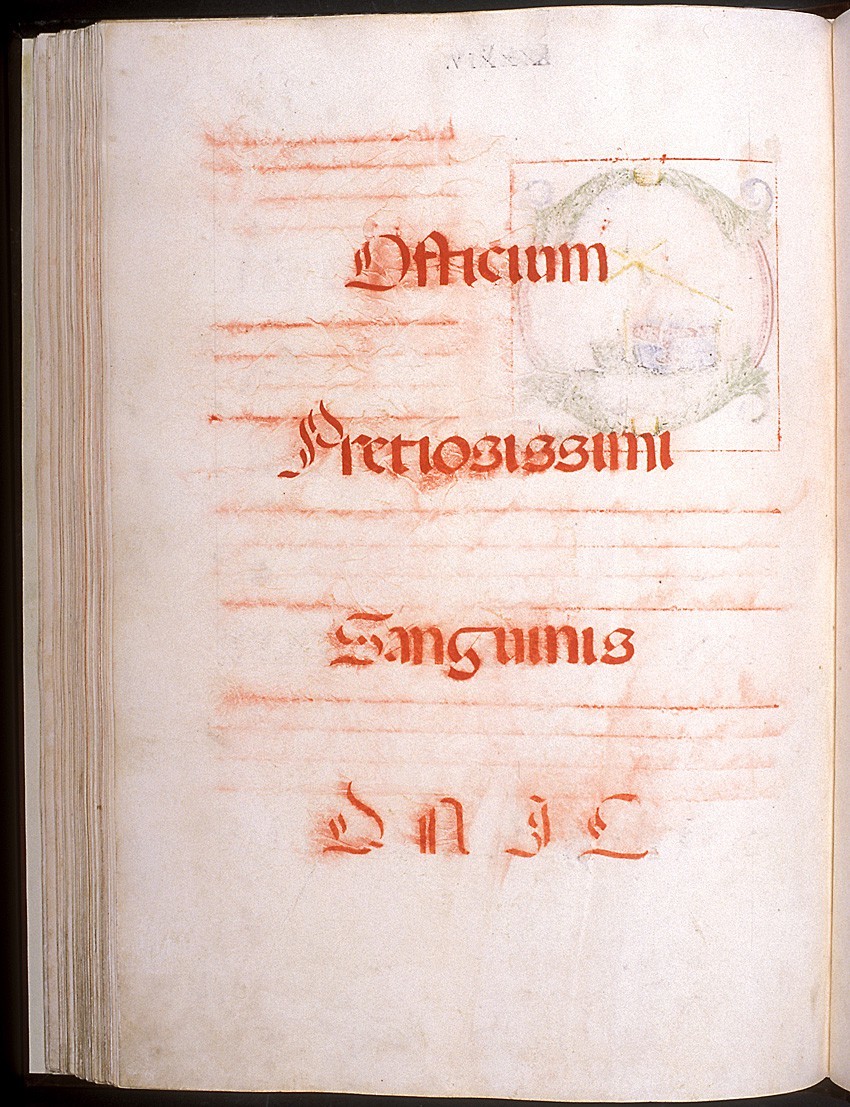 Officium
Pretiosissimi
Sanguinis
D N J C